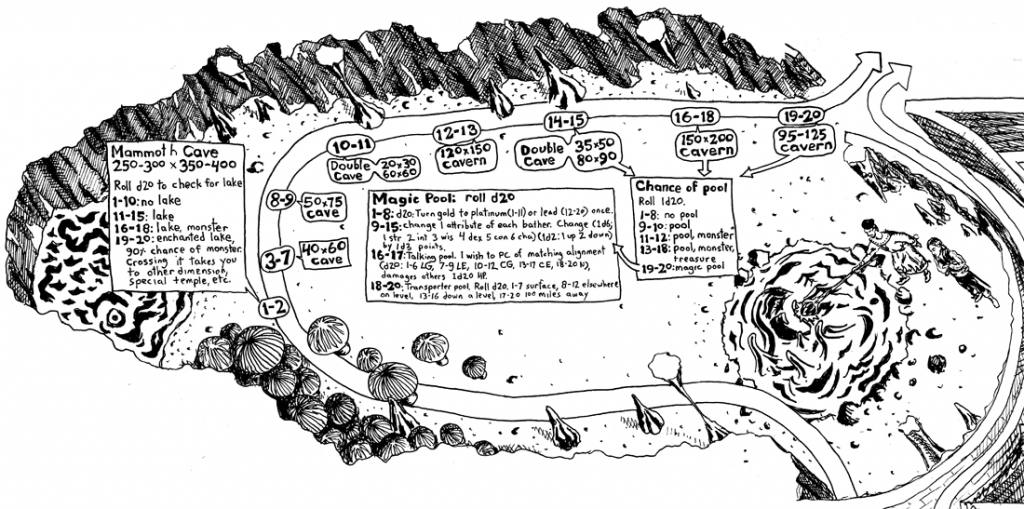 Mammoth Cave
250-300 x 350-400
Roll d20 to check for lake
1-10: no lake
11-15: lake
16-18: lake, monster
19-20: enchanted lake,
90% chance of monster.
Crossing it takes you
to other dimension,
special temple, etc.
1-2
3-7
40x60
cave
8-9
50x75
cave
10-11
Double
Cave
20x30
60x60
12-13
120x150
cavern
14-15
Double
Cave
35x50
80x90
16-18
150x200
cavern
19-20
95-125
cavern
Magic Pool: roll d20
1-8: d20: Turn gold to platinum (1-11) or lead (12-20) once.
9-15: change 1 attribute of each bather. Change (1d6;
1 str 2 int 3 wis 4 dex 5 con 6 cha) (1d2: 1 up 2 down)
by 1d3 points.
16-17: Talking pool. 1 wish to PC of matching alignment
(d20: 1-6 LG, 7-9 LE, 10-12 CG, 13-17 CE, 18-20 N),
damages others 1d20 HP.
18-20: Transporter pool. Roll d20, 1-7 surface, 8-12 elsewhere
on level, 13-16 down a level, 17-20 100 miles away
Chance of pool
Roll 1d20.
1-8: no pool
9-10: pool
11-12: pool, monster
13-18: pool, monster,
treasure
19-20: magic pool